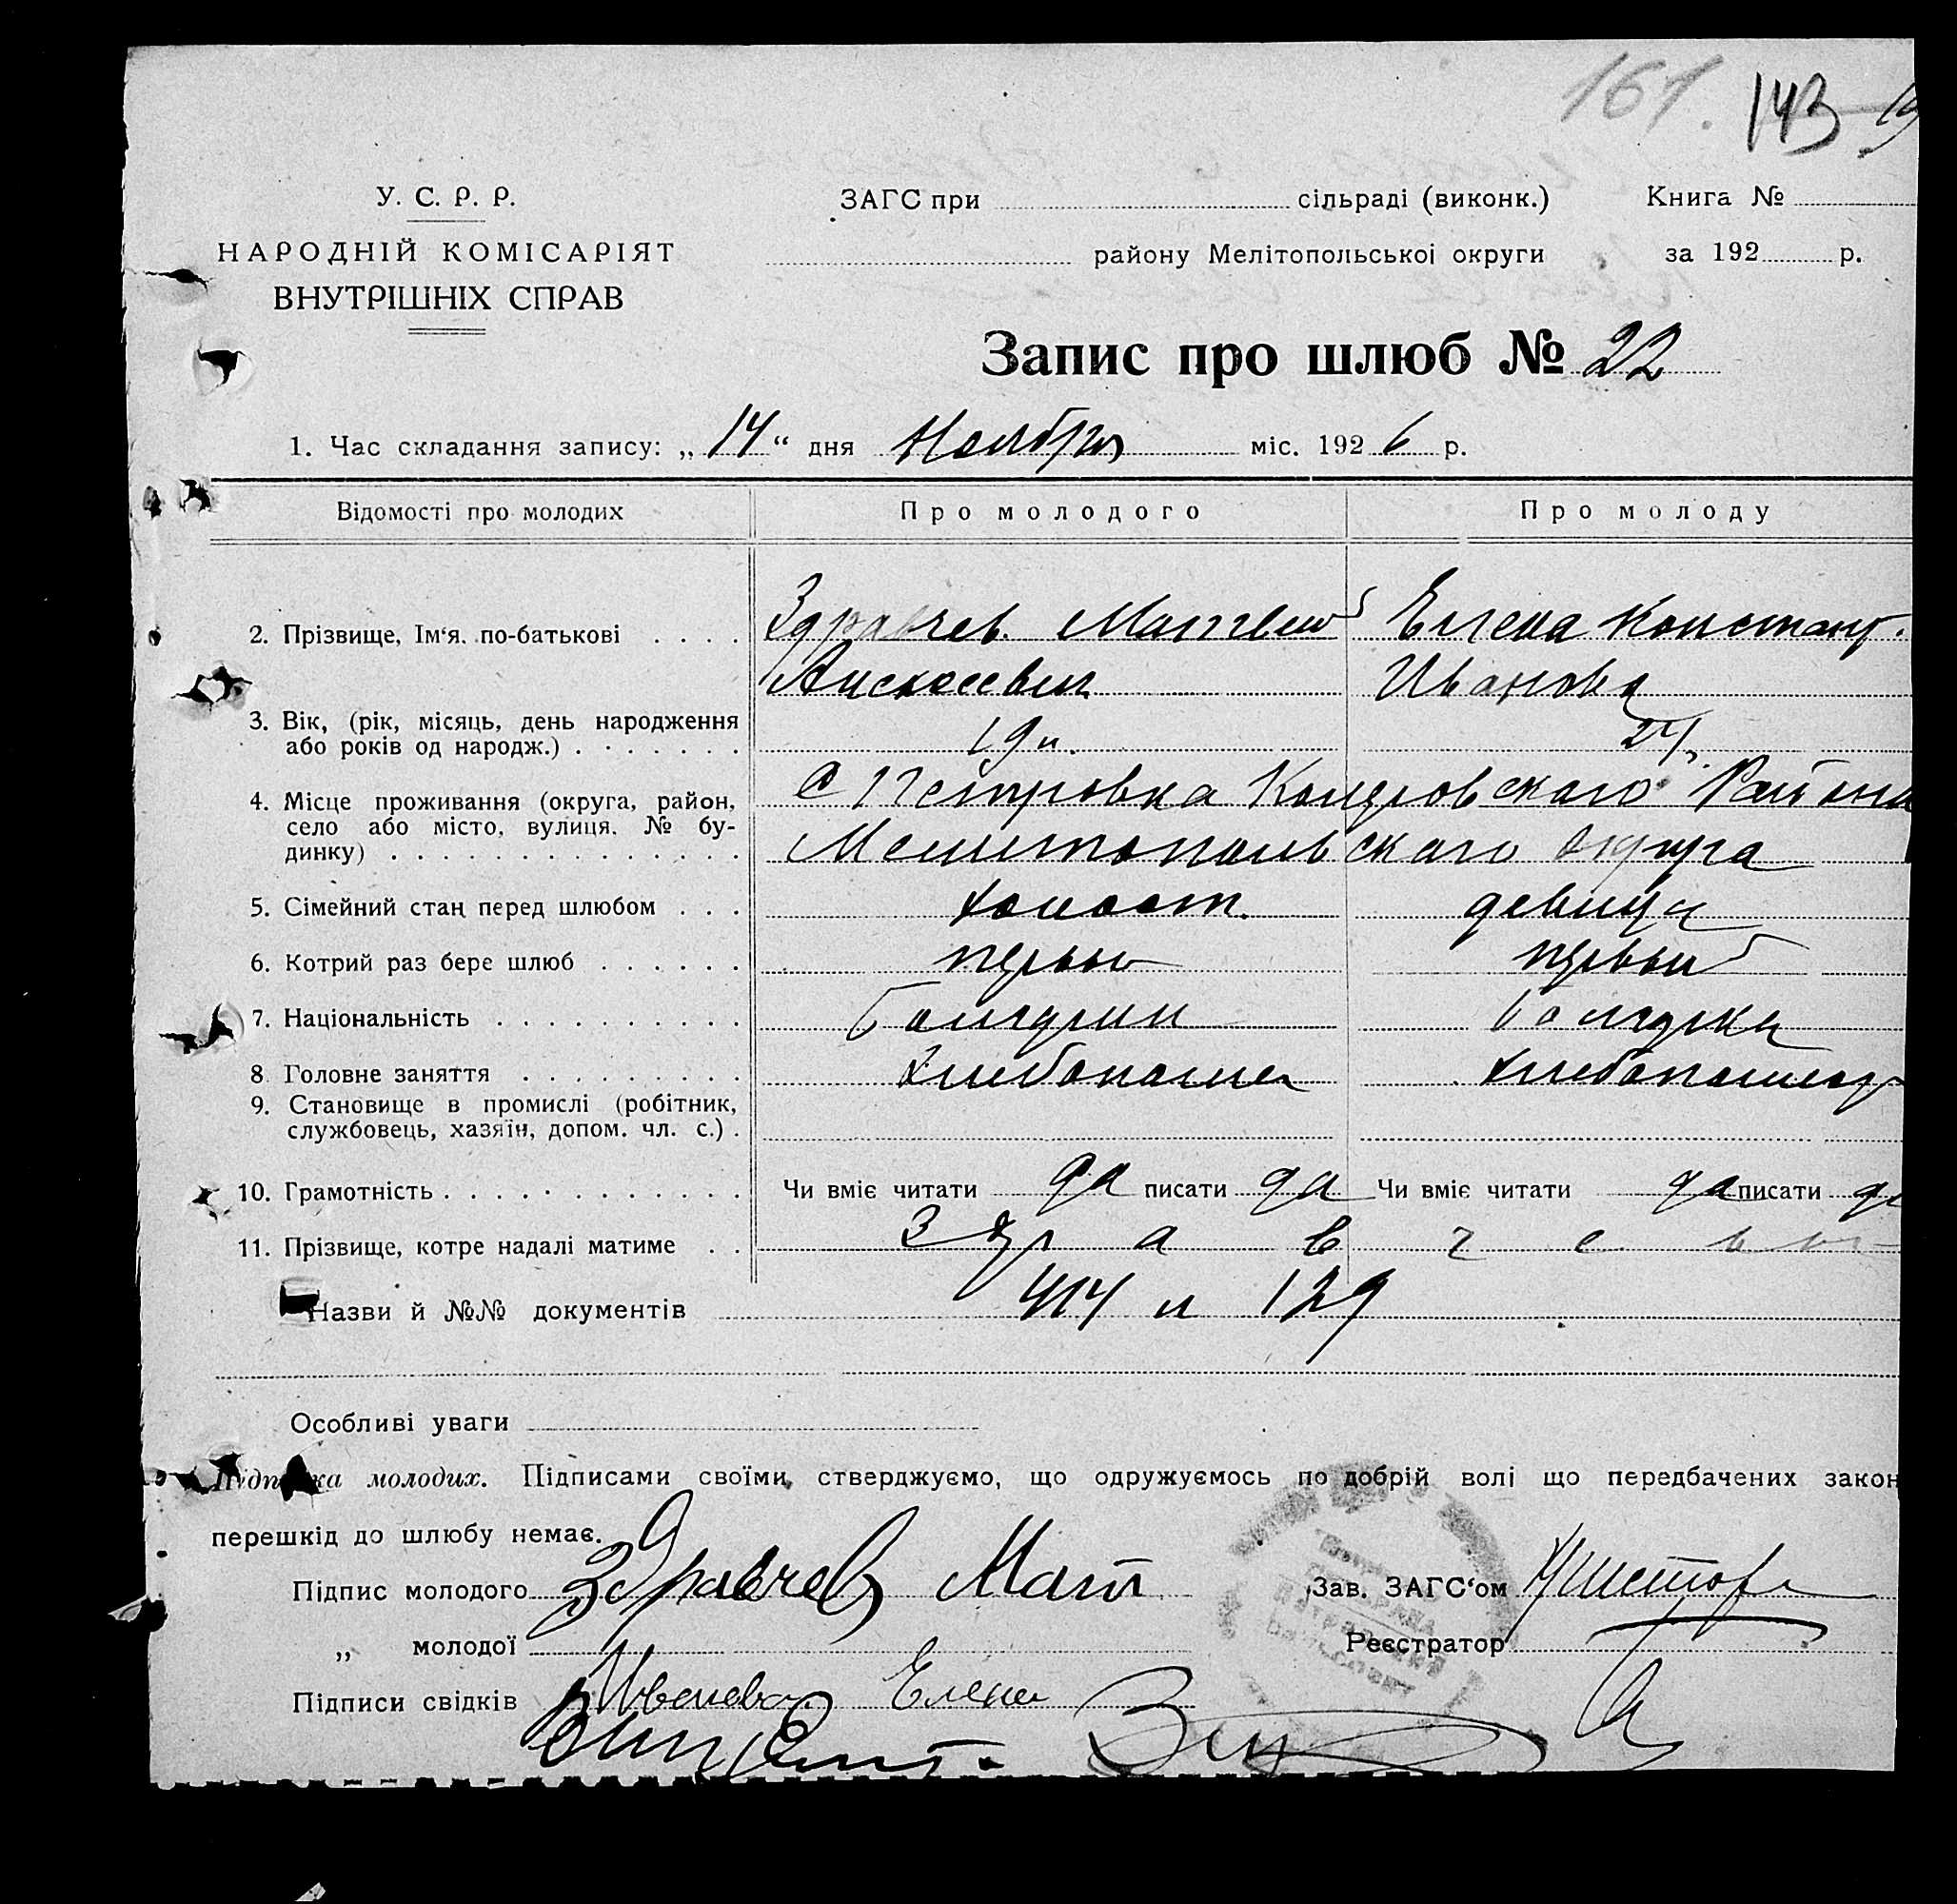 161. 143
У. С. Р. Р.
НАРОДНІЙ КОМІСАРІЯТ
ВНУТРІШНІХ СПРАВ
ЗАГС при сільраді (виконк.)
району Мелітопольськоі округи
Книга №
за 192 р.
Запис про шлюб № 22
1. Час складання запису: „14“ дня Ноября міс. 1926 р.
Відомості про молодих Про молодого Про молоду
2. Прізвище, Ім‘я, по-батькові Здравчев Матвей Елена Констант.
Алексеевич Иванова
3. Вік, (рік, місяць, день народження
або років од народж.) 19 л.
4. Місце проживання (округа, район,
село або місто, вулиця, № бу-
динку)
с Петровка Коларовского Района
Мелитопольского округа
5. Сімейний стан перед шлюбом холост. девица
6. Котрий раз бере шлюб первый первый
7. Національність болгарин болгарка
8. Головне заняття
9. Становище в промислі (робітник,
службовець, хазяїн, допом. чл. с.)
10. Грамотність Чи вміє читати да писати да Чи вміє читати да писати да
11. Прізвище, котре надалі матиме Здравчевы
Назви й №№ документів 414 и 129
Особливі уваги
молодих. Підписами своїми, стверджуємо, що одружуємось по добрій волі що передбачених закон
перешкід до шлюбу немає.
Підпис молодого Здравчев Мат
Зав. ЗАГС‘ом
„ молодої
Реєстратор
Підписи свідків Иванова Елена